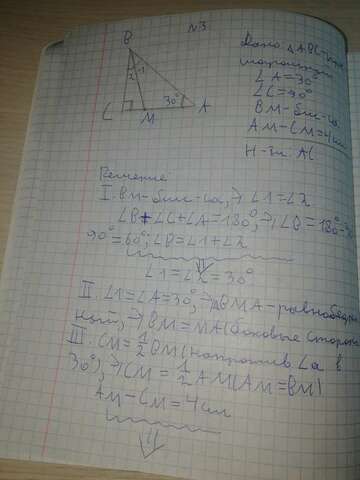 N3
B
2 1
30°
C M A
Дано: △ABC-пря
моугольн
∠A=30°
∠C=90°
BM-бис-са
AM-CM=4см
Н-ти: AC
Решение
I. BM-бис-са, ⇒ ∠1=∠2
∠B+∠C+∠A=180°, ⇒ ∠B=180°-30-
90°=60°; ∠B=∠1+∠2
⇓
∠1=∠2=30°
II. ∠1=∠A=30°, ⇒ △BMA-равнобедрен
ный, ⇒ BM=MA(боковые стороны
III. CM=1/2BM(напротив ∠а в
30°), ⇒ CM=1/2AM(AM=BM)
AM-CM=4см
⇓